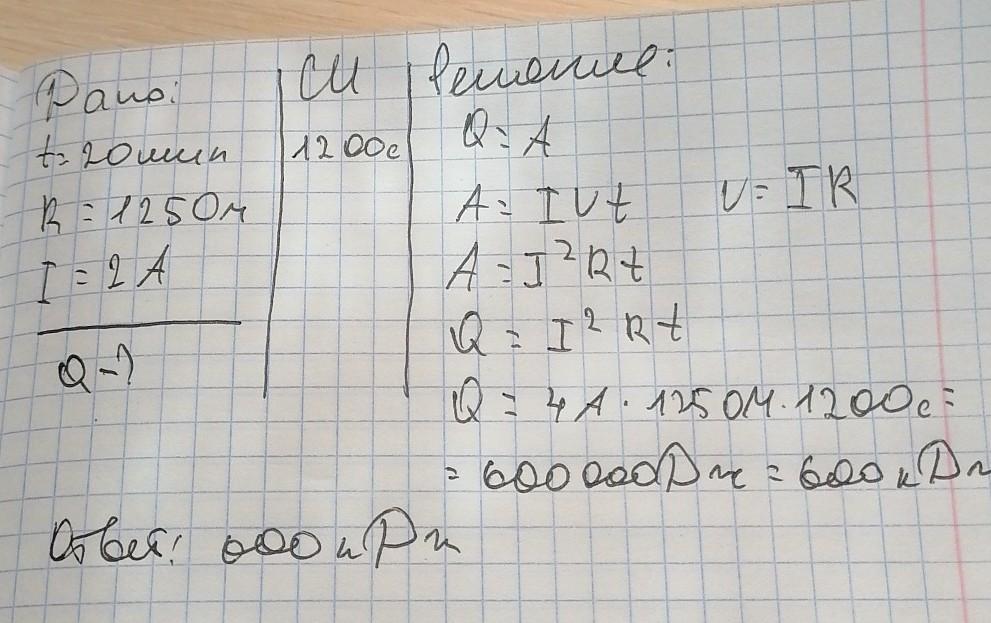 Дано:
t=20мин
R=125Ом
I=2A
Q-?
СИ
1200с
Решение:
Q=A
A=IUt U=IR
A=I²Rt
Q=I²Rt
Q=4A·125Ом·1200с=
=600000Дж=600кДж
Ответ: 600кДж